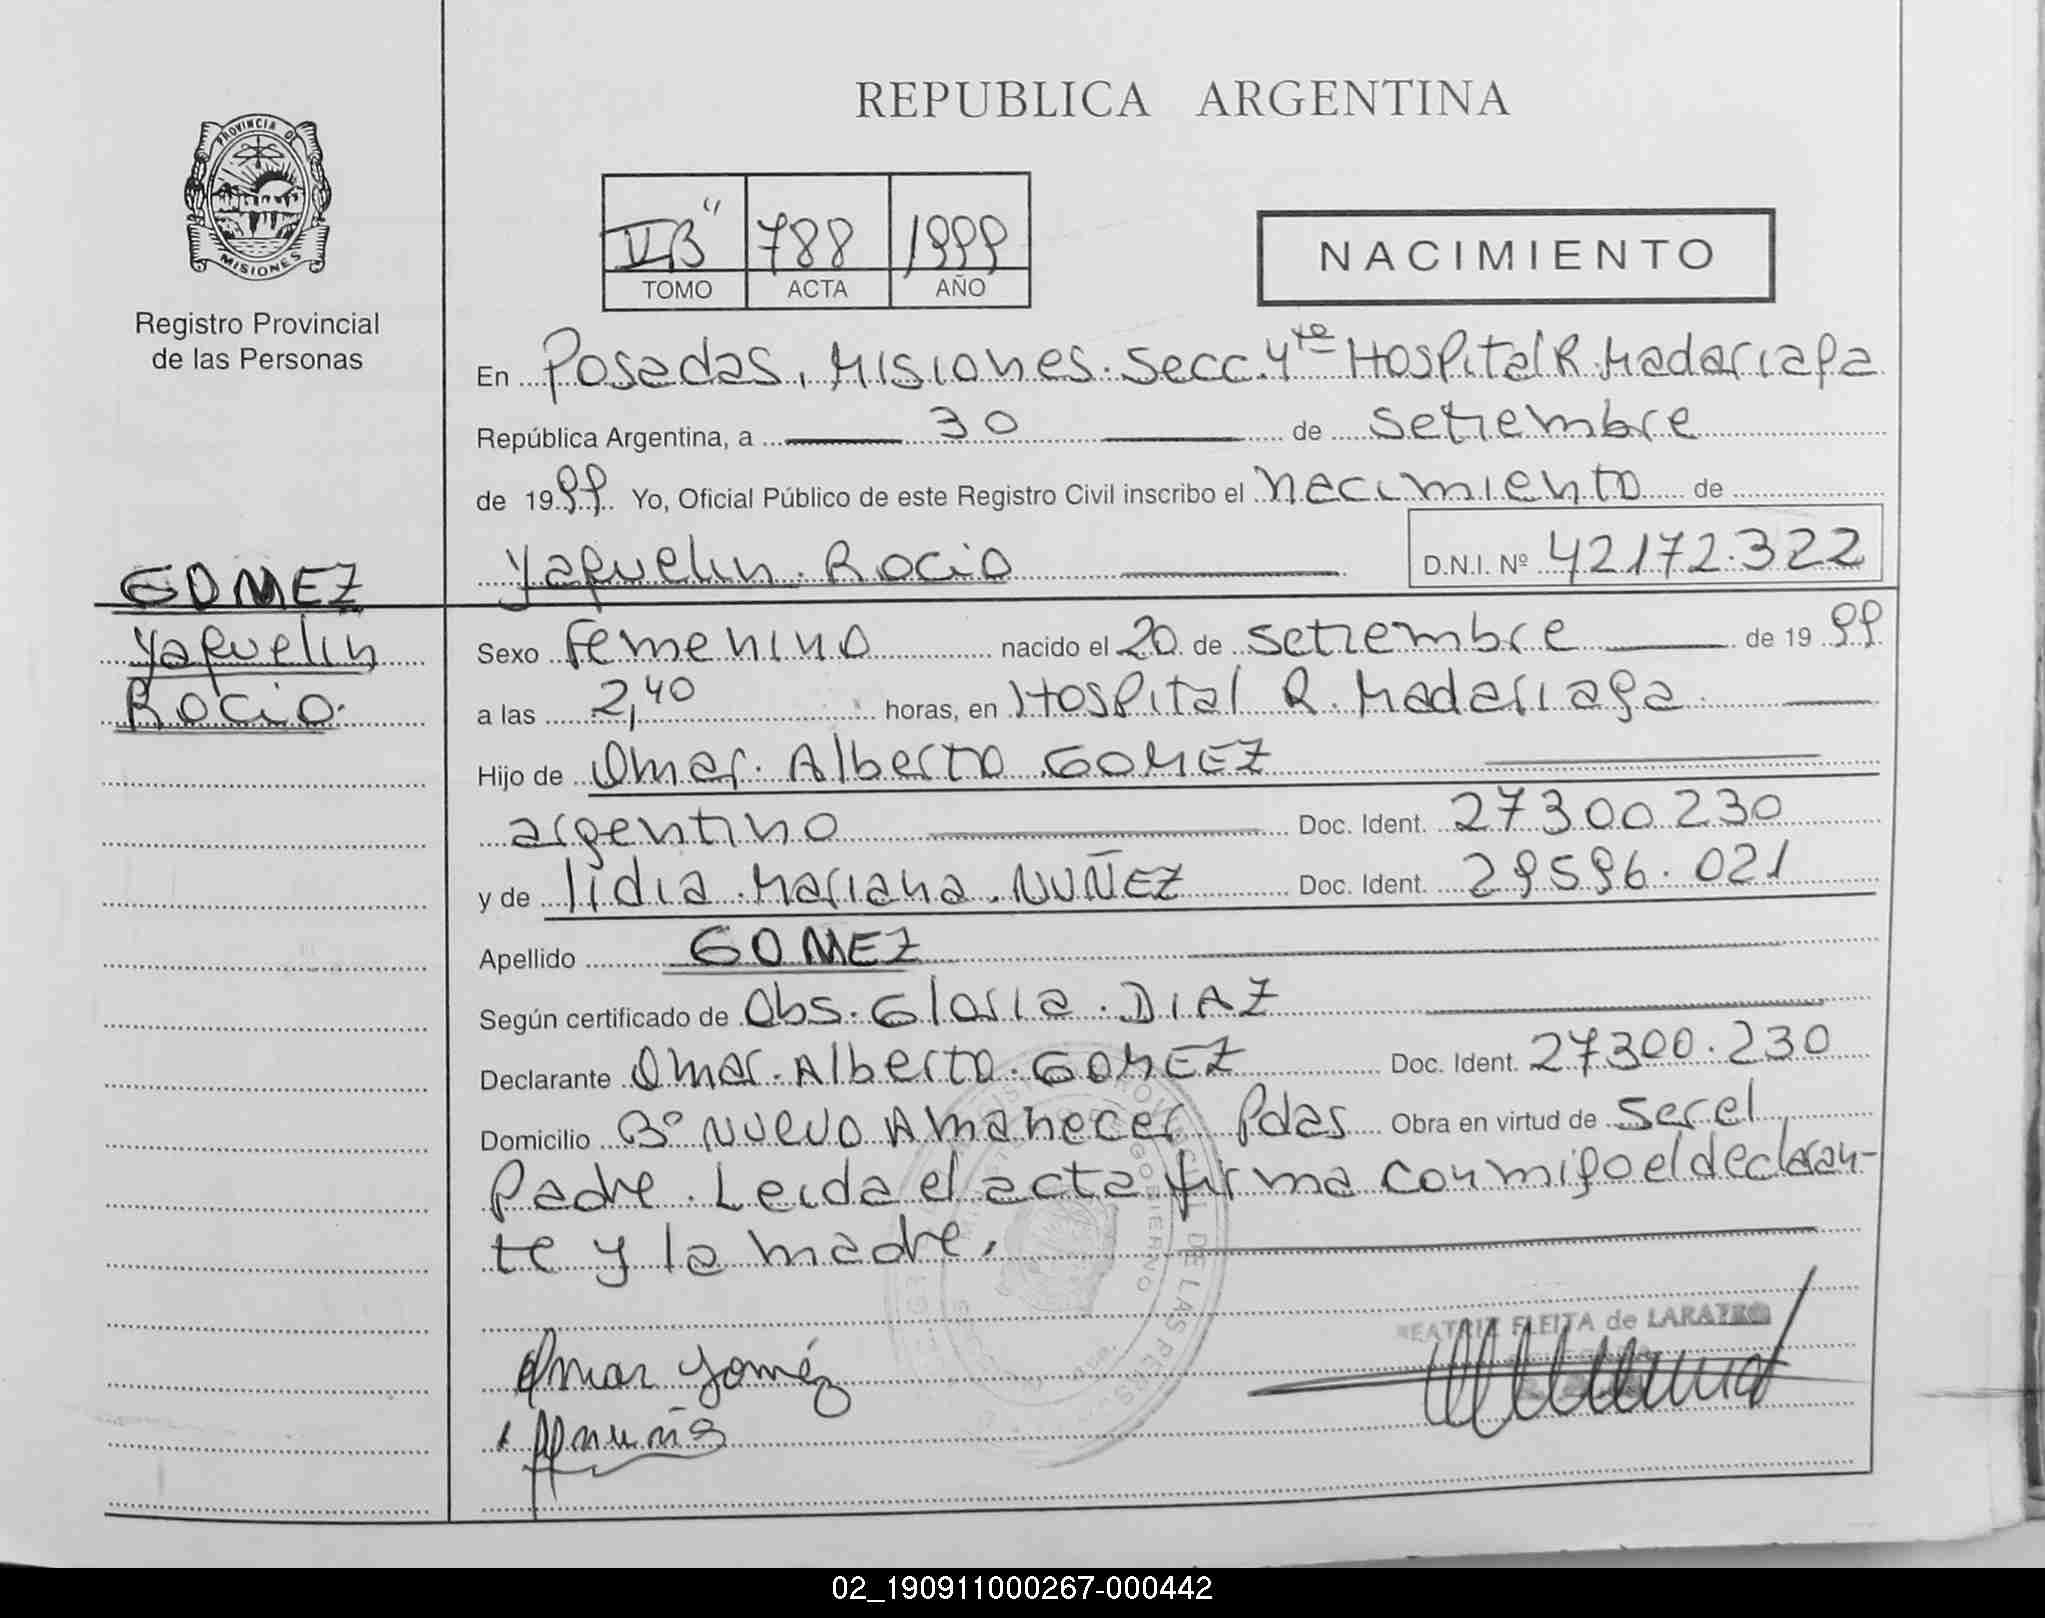 REPUBLICA ARGENTINA
PROVINCIA DE
MISIONES
Registro Provincial
de las Personas
VI "B" 788 1999
TOMO ACTA AÑO
NACIMIENTO
En Posadas, Misiones. Secc. 4ta Hospital R. Madariaga
República Argentina, a 30 de setiembre
de 1999 Yo, Oficial Público de este Registro Civil inscribo el nacimiento de
Yaquelin Rocio D.N.I. Nº 42172.322
GOMEZ
Yaquelin
Rocio.
Sexo Femenino nacido el 20 de setiembre de 1999
a las 2,40 horas, en Hospital R. Madariaga
Hijo de Omar Alberto GOMEZ
argentino Doc. Ident. 27300230
y de lidia Mariana NUÑEZ Doc. Ident. 29596.021
Apellido GOMEZ
Según certificado de Obs. Gloria DIAZ
Declarante Omar Alberto GOMEZ Doc. Ident. 27300.230
Domicilio Bº Nuevo Amanecer Pdas Obra en virtud de ser el
Padre. Leida el acta firma conmigo el declaran-
te y la madre.
BEATRIZ FLEITA de LARA
Omar Goméz
02_190911000267-000442